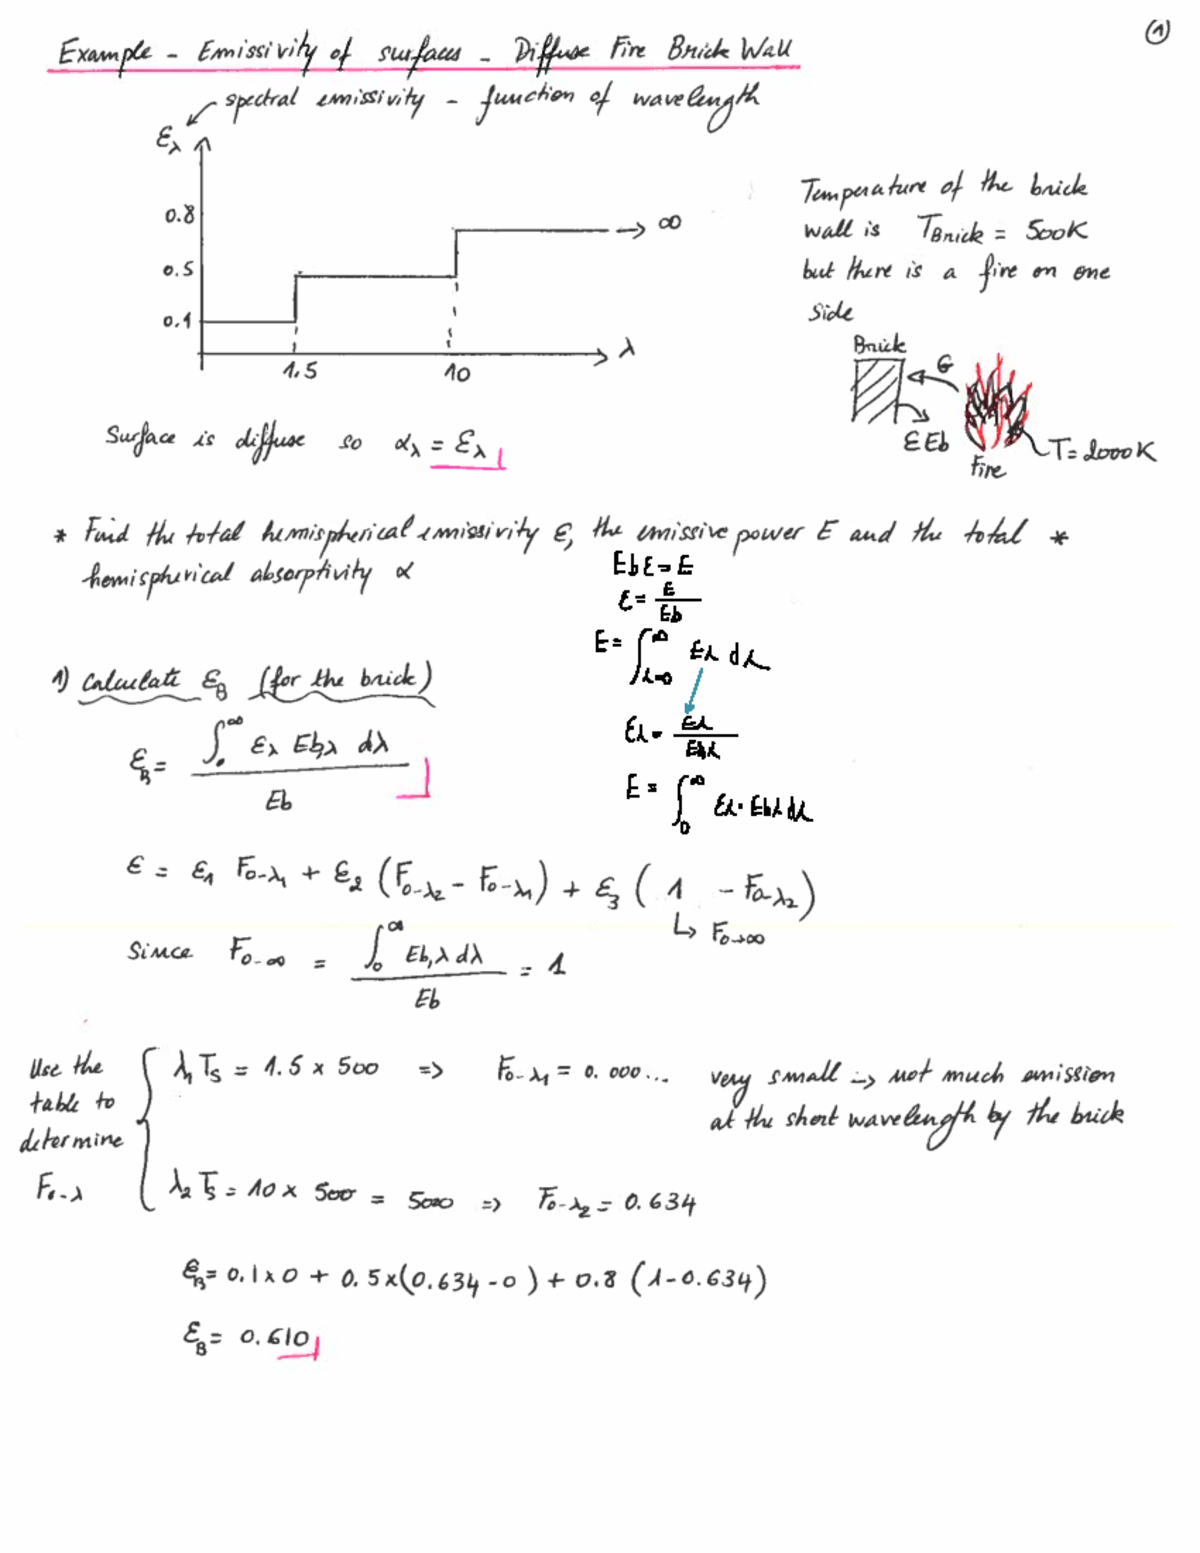 ①
Example - Emissivity of surfaces - Diffuse Fire Brick Wall
spectral emissivity - function of wavelength
ελ
0.8
∞
0.5
0.1
λ
1.5
10
Temperature of the brick
wall is TBrick = 500K
but there is a fire on one
side
Brick
G
εEb
T=2000K
Fire
Surface is diffuse so αλ = ελ
* Find the total hemispherical emissivity ε, the emissive power E and the total *
hemispherical absorptivity α
Ebε=E
ε= E/Eb
E= ∫λ=0^∞ Eλ dλ
ελ= Eλ/Ebλ
E= ∫0^∞ ελ·Ebλdλ
1) Calculate εB (for the brick)
εB= ∫0^∞ ελ Eb,λ dλ / Eb
ε = ε1 F0-λ1 + ε2 (F0-λ2 - F0-λ1) + ε3 ( 1 - F0-λ2)
↳ F0→∞
Since F0-∞ = ∫0^∞ Eb,λ dλ / Eb = 1
Use the
table to
determine
F0-λ
λ1 TS = 1.5 x 500 => F0-λ1 = 0.000... very small => not much emission
at the short wavelength by the brick
λ2 TS = 10 x 500 = 5000 => F0-λ2 = 0.634
εB= 0.1x0 + 0.5x(0.634-0) + 0.8 (1-0.634)
εB= 0.610